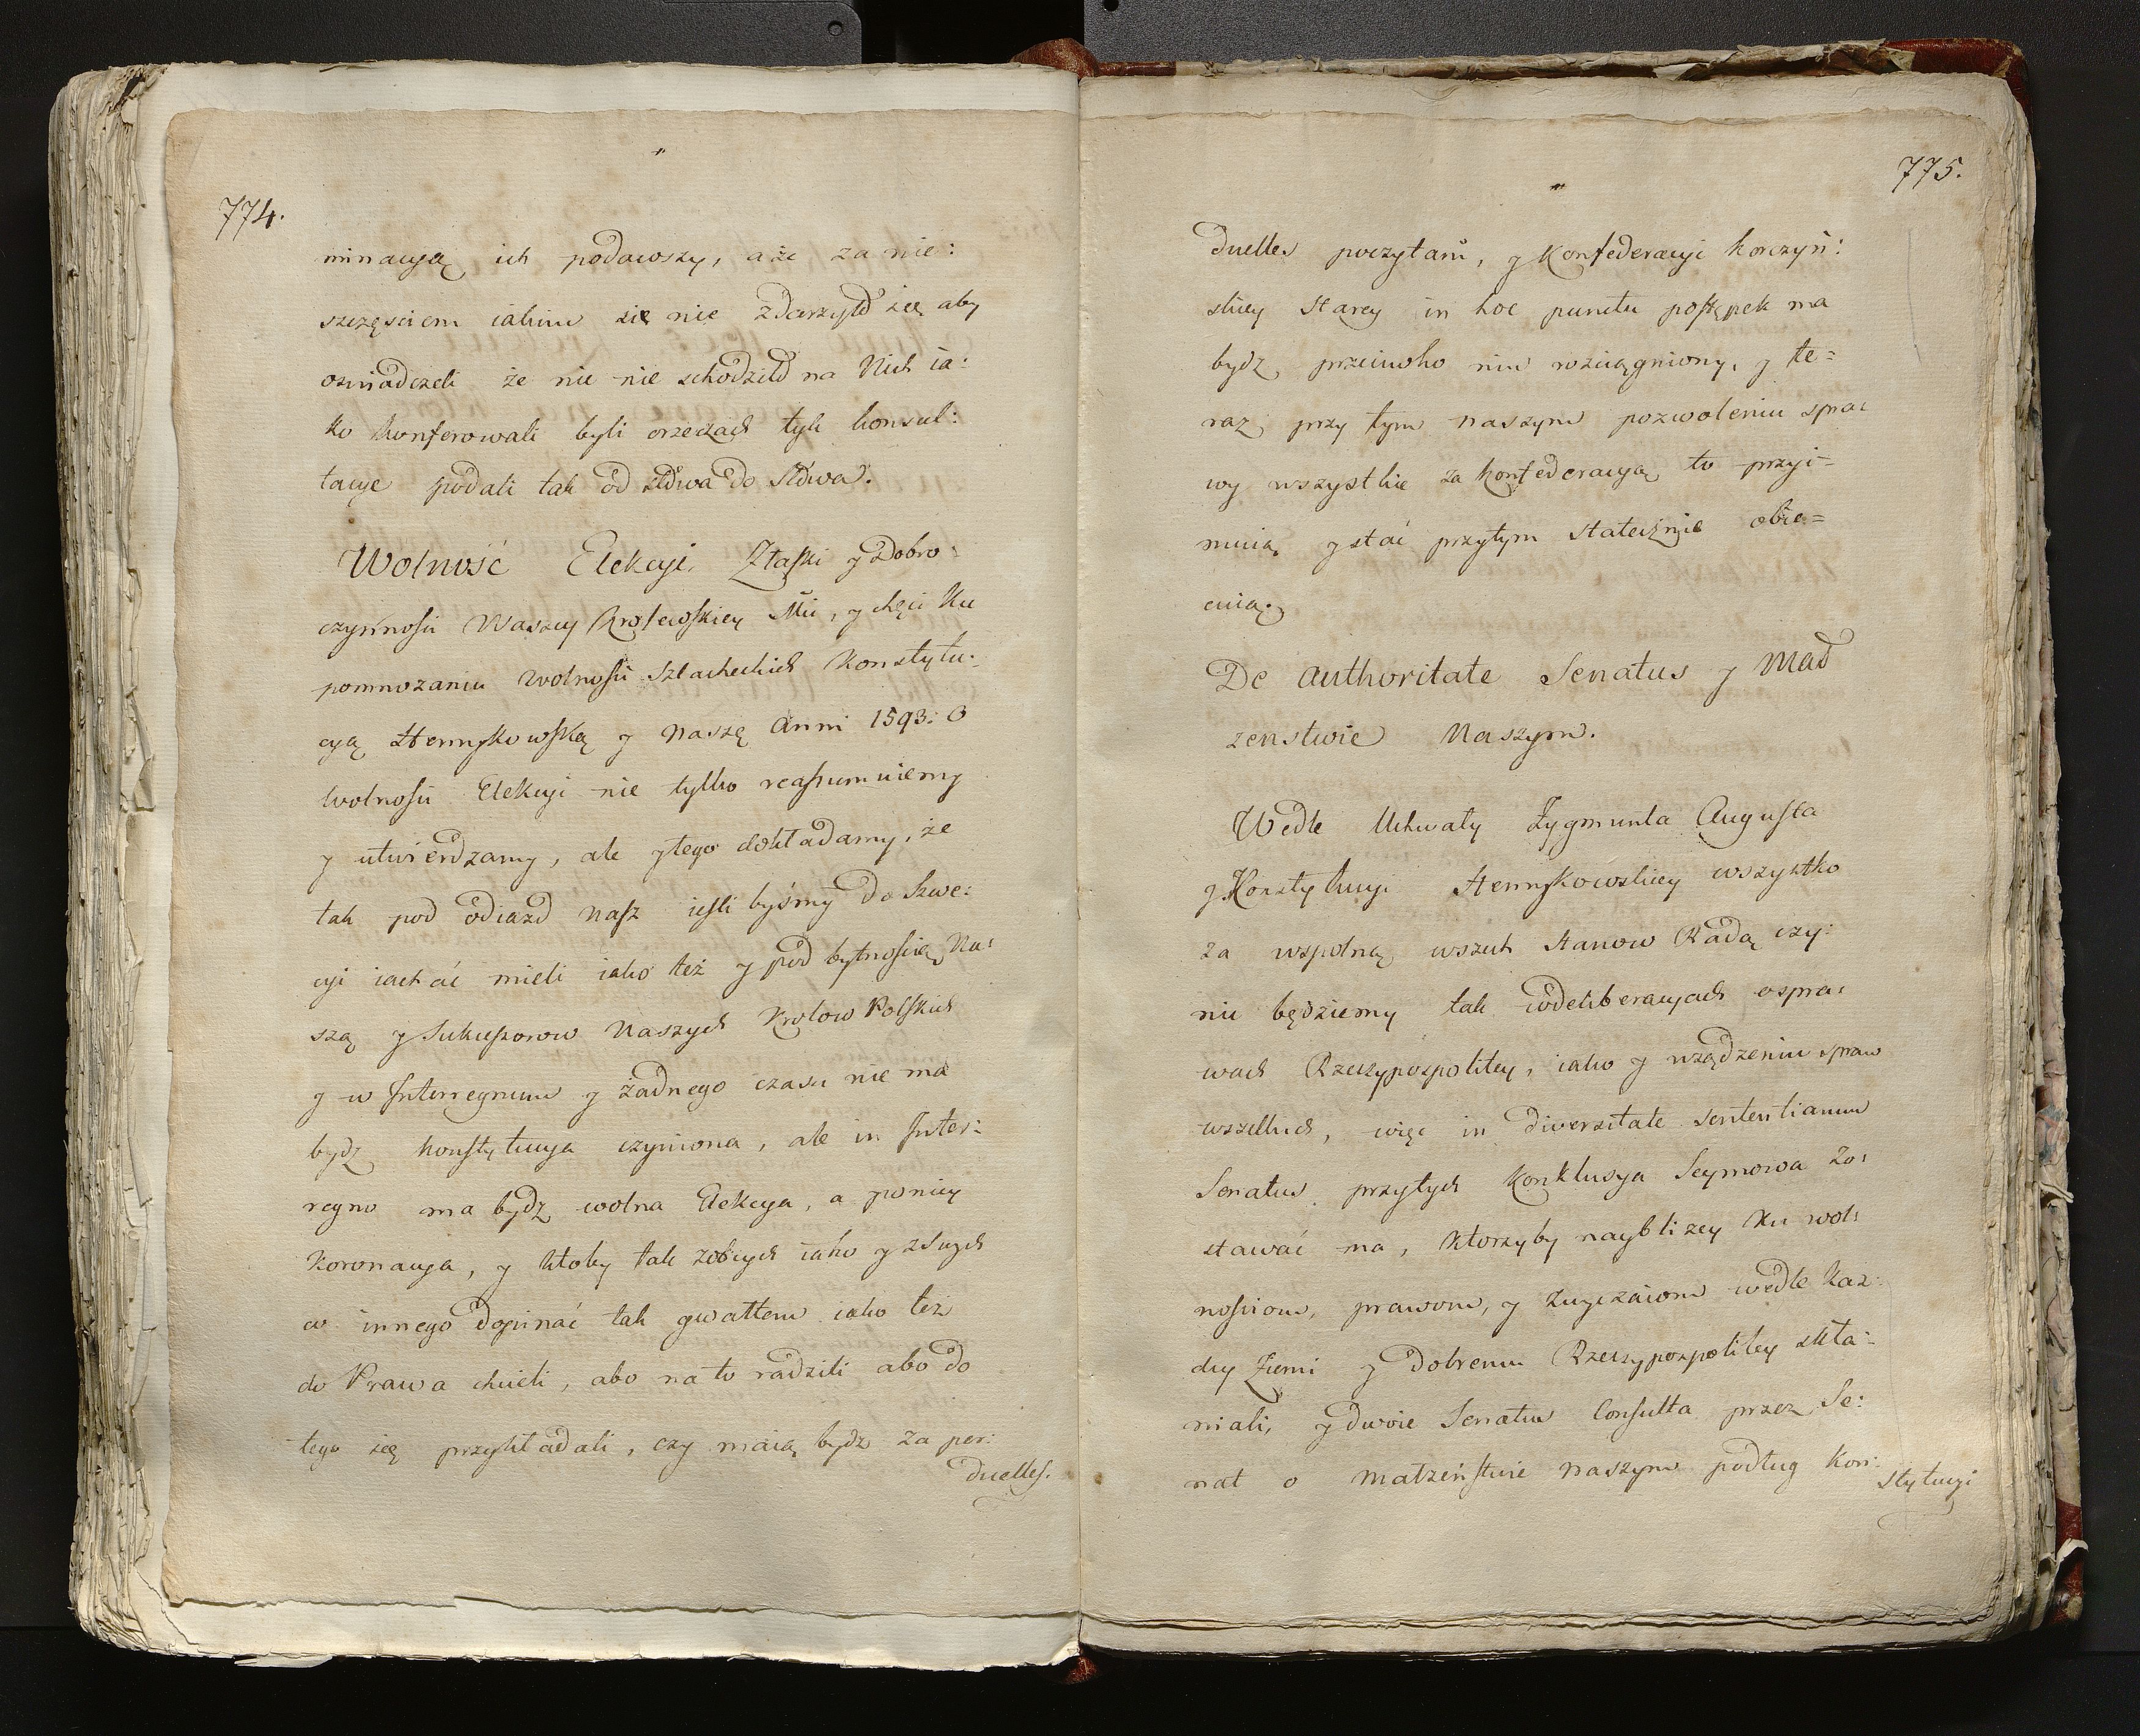 774.
minacyą ich podawszy, a że za nie:
szczęściem iakim się nie zdarzyło się aby
oswiadczeli że nic nie schodziło na Nich ia:
ko konferowali byli orzeczach tych konsul:
tacye podali tak od słowa do słowa.
Wolność Elekcyi. Z łaski y Dobro:
czynności Waszey Krolewskiey Mci, y chęci Ku
pomnożaniu wolności Szlacheckich Konstytu:
cyą Henrykowską y Naszę Anni 1593: O
wolności Elekcyi nie tylko reassumuiemy
y utwierdzamy, ale y tego dokładamy, że
tak pod odiazd nasz iesli byśmy do Szwe:
cyi iachać mieli iako też y pod bytnością Na:
szą y Sukcessorow Naszych Krolow Polskich
y w Interregnum y żadnego czasu nie ma
bydz konstytucya czyniona, ale in Inter:
regno ma bydz wolna Elekcya, a po niey
Koronacya, y ktoby tak zobcych iako y zSwych
co innego dopinać tak gwałtem iako też
do Prawa chcieli, abo na to radzili abo do
tego się przykładali, czy maią bydz za per:
duelles.
775.
duelles poczytani, y Konfederacyi Korczyń:
skiey Starey in hoc punctu postępek ma
bydz przeciwko nim rozciągniony, y te=
raz przy tym naszym pozwoleniu spra:
wy wszystkie za Konfederacyą to przyi=
muią y stać przytym statecznie obie=
cuią.
De authoritate Senatus y Mał
żenstwie Naszym.
Wedle Uchwały Zygmunta Augusta
y Konstytucyi Henrykowskiey wszystko
za wspolną wszech Stanow Radą czy:
nić będziemy tak wdeliberacyach ospra:
wach Rzeczypospolitey, iako y urządzeniu spraw
wszelkich, więc in diversitate Sententiarum
Senatus przytych Konklusya Seymowa Zo:
stawać ma, Ktorzyby naybliżey Ku wol:
nościom, prawom, y zwyczaiom wedle Kaz:
dey Ziemi y dobremu Rzeczypospolitey skła:
niali, y dwoie Senatus Consulta przez Se:
nat o małżeństwie naszym podług Kon:
stytucyi